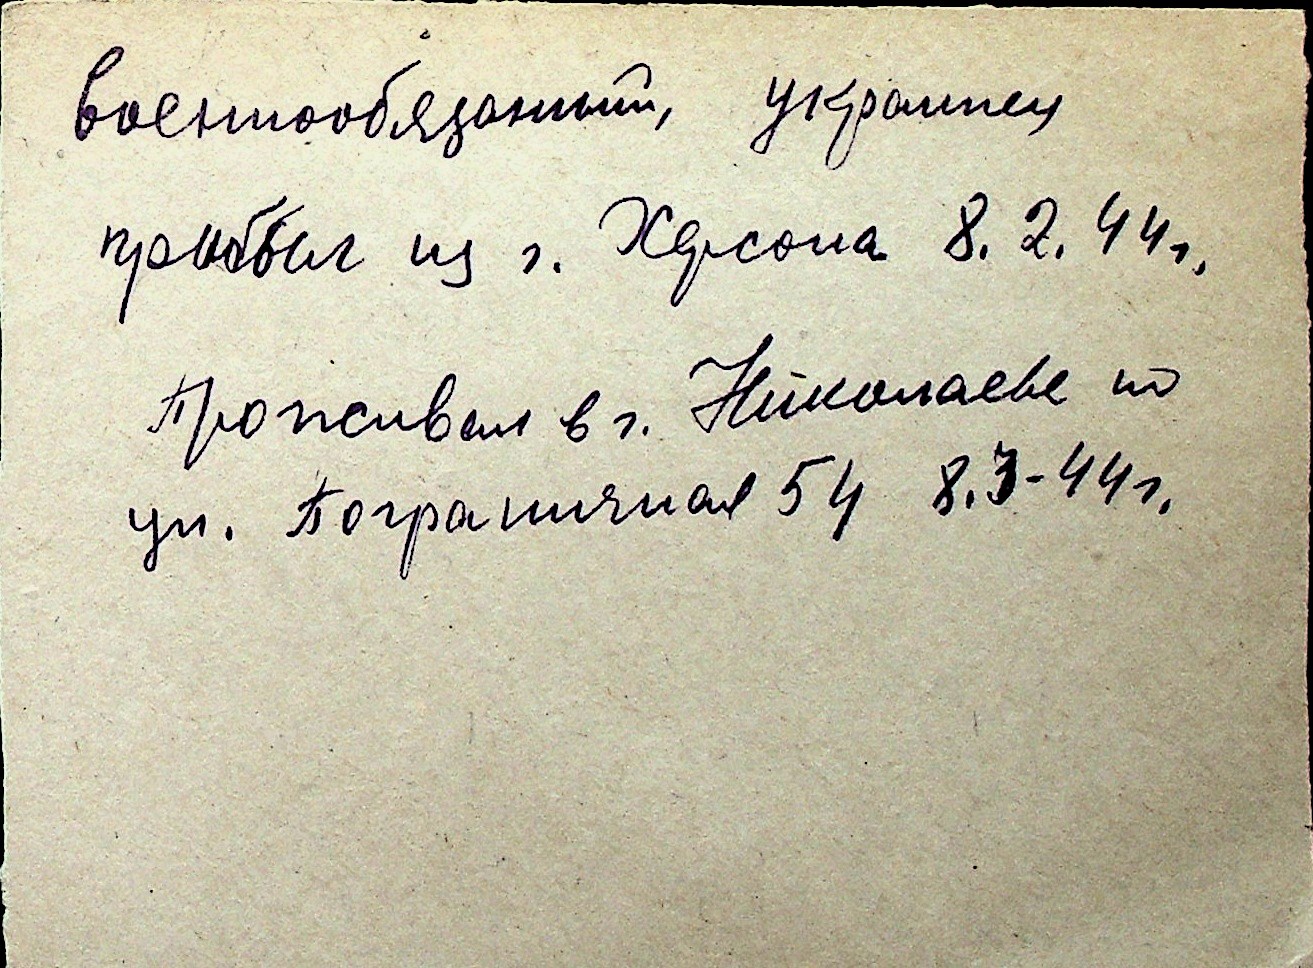 военнообязанный, украинец
прибыл из г. Херсона 8.2.44г.
Проживал в г. Николаеве по
ул. Пограничная 54 8.3-44г.